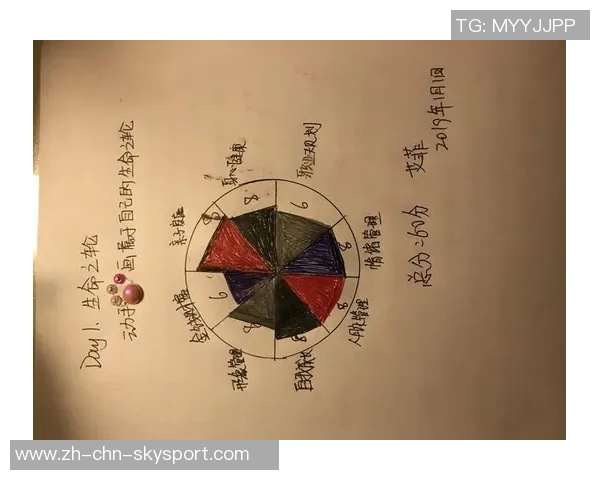 TG: MYYJJPP
Day 1. 生命之轮
动手画属于自己的生命之轮
身心健康
8
职业规划
6
情绪管理
8
人脉管理
8
自我成长
8
形象管理
8
6
8
总分:60分
艾菲
2019年1月1日
www.zh-chn-skysport.com